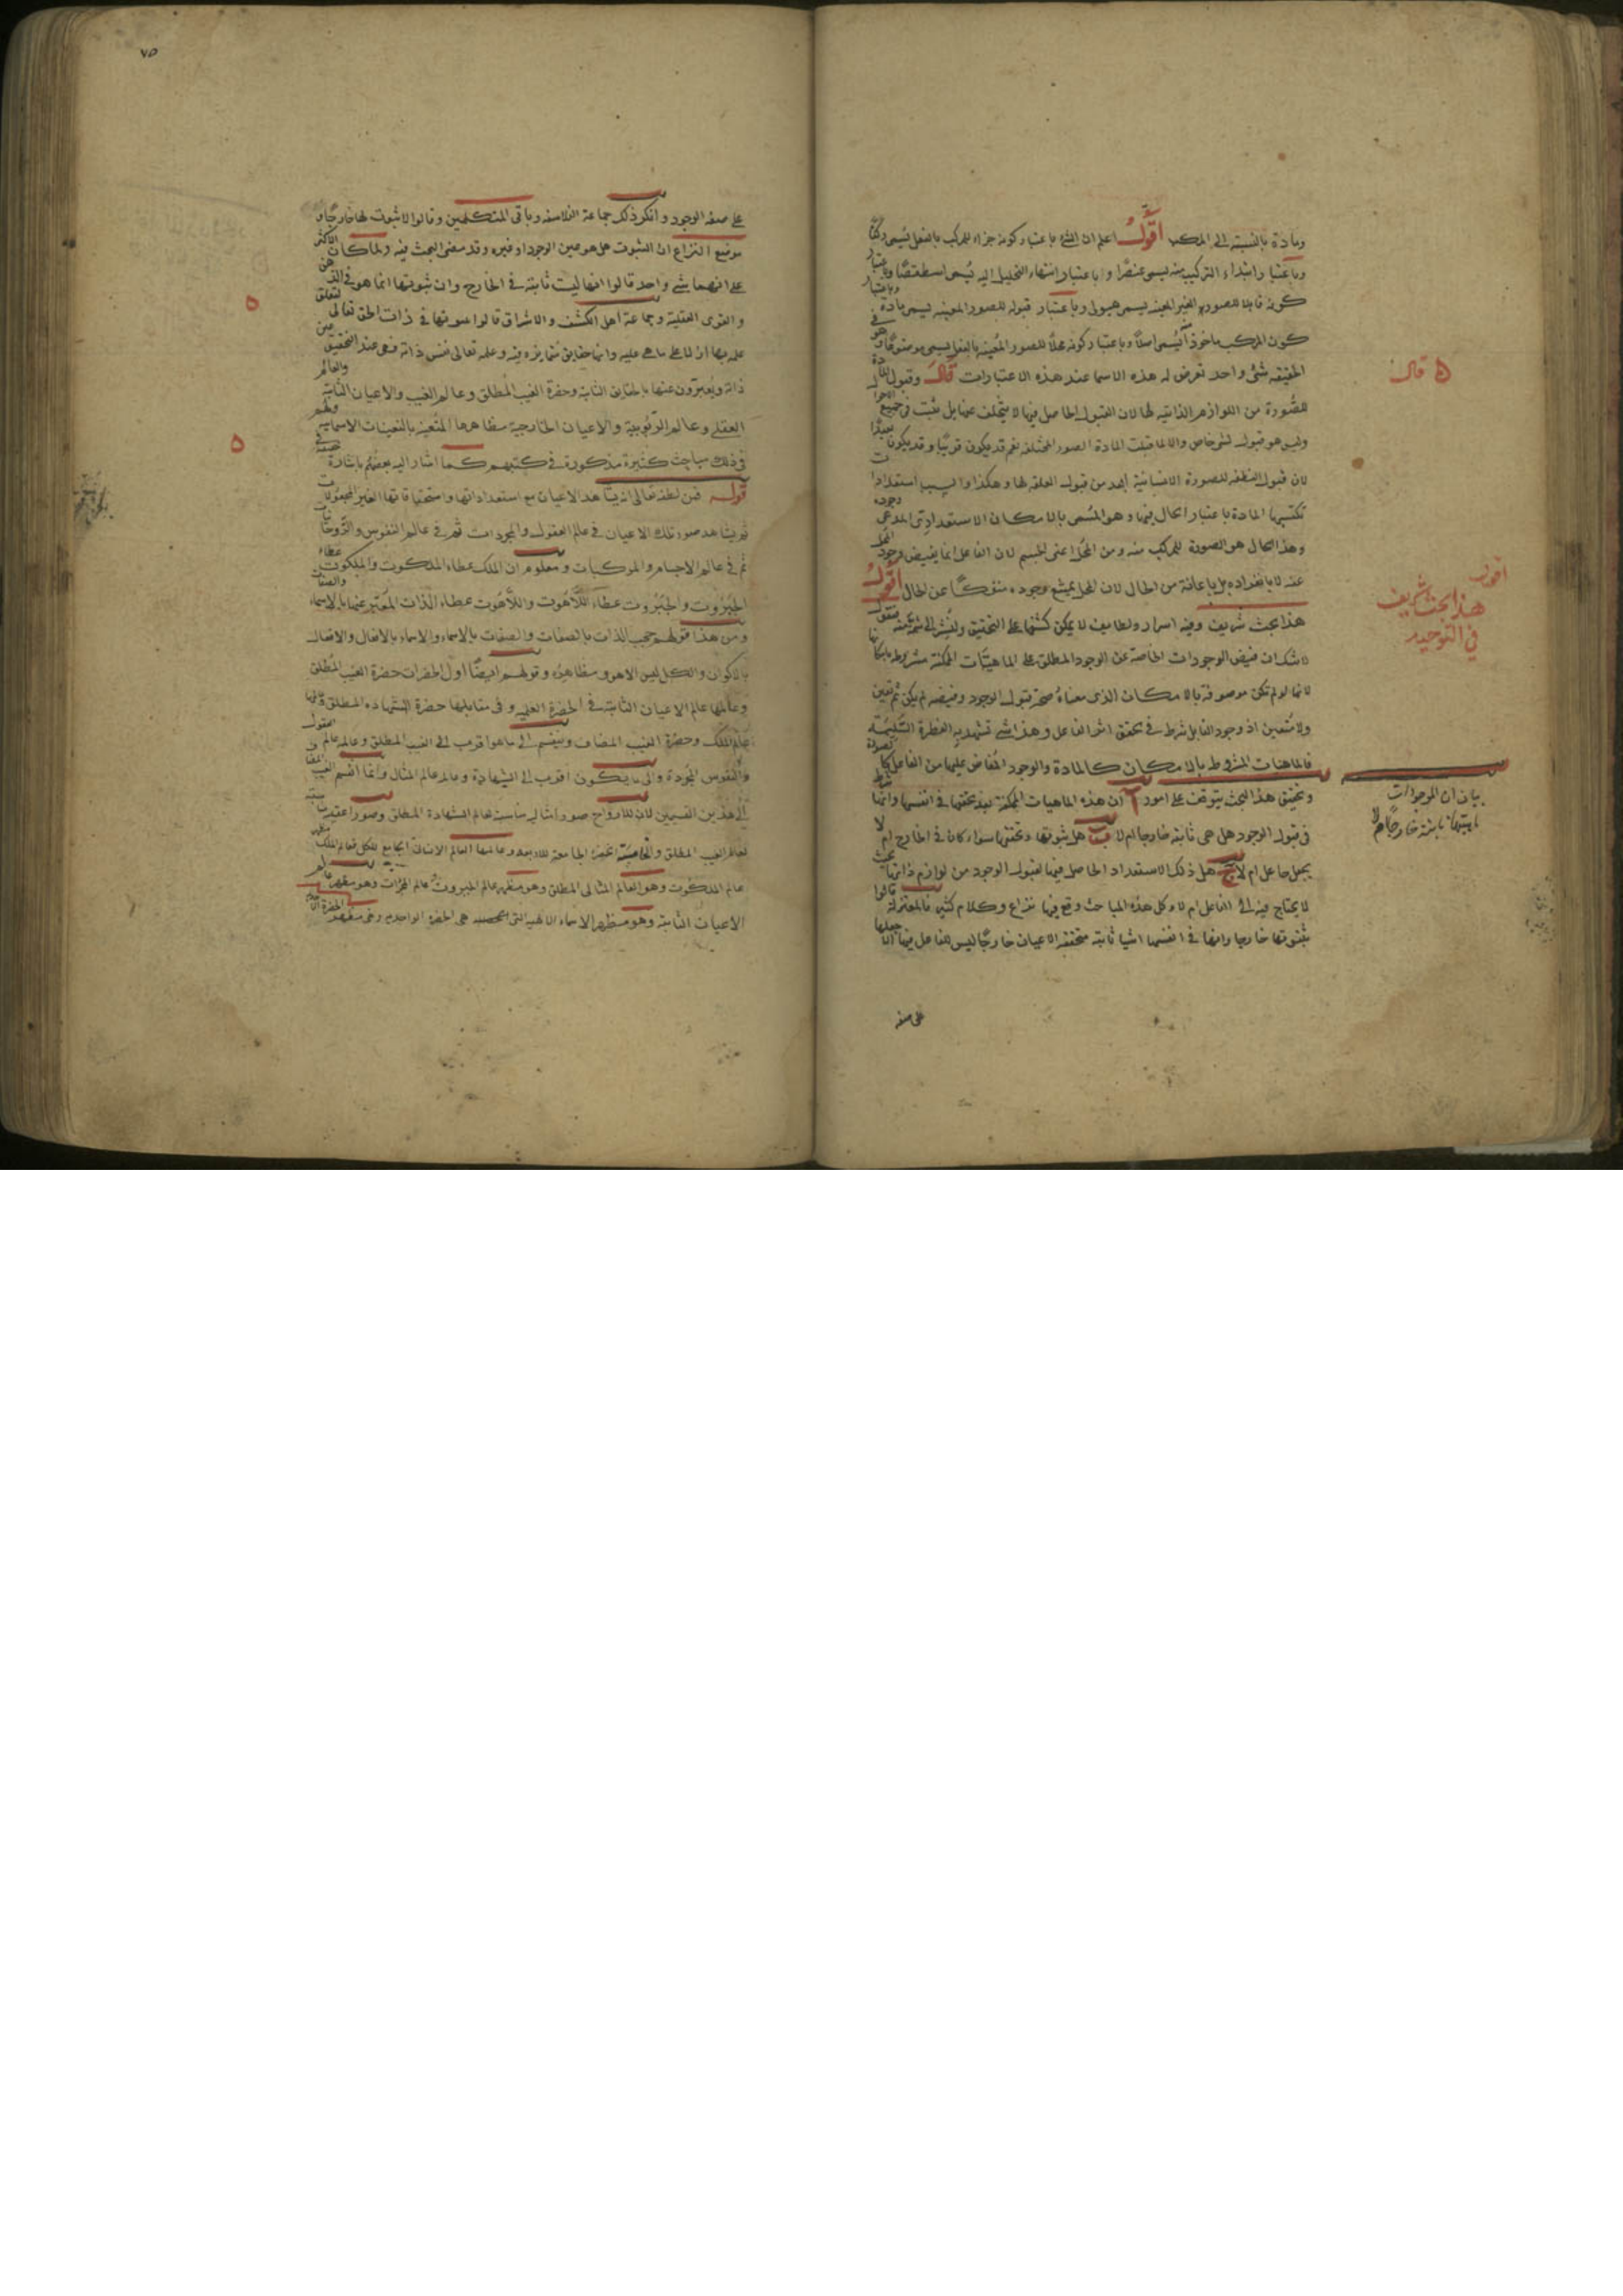 ومادة بالنسبة الى المركب اقول اعلم ان الشئ باعتبار كونه جزاء للمركب بالفعل يسمى ركنا
وباعتبار ابتداء التركيب منه يسمى عنصرا وباعتبار انتهاء التحليل اليه يسمى اسطقصا وباعتبار
كونه قابلا للصورة الغير المعينه يسمى هيولى وباعتبار قبوله للصور المعينه يسمى مادة وباعتبار
كون المركب ماخوذا منه يسمى اصلا وباعتبار كونه محلا للصور المعينه بالفعل يسمى موضوعا وهو في
الحقيقه شئ واحد تعرض له هذه الاسما عند هذه الاعتبارات قال وقبول المادة
للصورة من اللوازم الذاتيه لها لان القبول الحاصل فيها لا يتخلف عنها بل يثبت في جميع
وليس هو قبول لشئ خاص والا لما قبلت المادة الصور المختلفه نعم قد يكون قريبا وقد يكون بعيدا
لان قبول النطفه للصورة الانسانية ابعد من قبول العلقه لها وهكذا والسبب استعدادات
تكتسبها المادة باعتبار الحال فيها وهو المسمى بالامكان الاستعدادى
وهذا الحال هو الصورة للمركب منه ومن المحل اعنى الجسم لان الفاعل انما يفيض وجود المحل
عنه لا بانفراده بل باعانة من الحال لان المحل يمتنع وجوده منفكا عن الحال اقول
هذا بحث شريف وفيه اسرار ولطايف لا يمكن كشفها على التحقيق ولنشر الى شئ منه فنقول
لا شك ان فيض الوجودات الخاصة عن الوجود المطلق على الماهيات الممكنة مشروط بامكانها
لانها لو لم تكن موصوفة بالامكان الذى معناه صحة قبول الوجود وفيضه لم يكن ثم تعين
ولا متعين اذ وجود القابل شرط في تحقق اثر الفاعل وهذا شئ تشهد به الفطرة السليمة
فالماهيات المشروط بالامكان كالمادة والوجود المفاض عليها من الفاعل كالصورة
وتحقيق هذا البحث يتوقف على امور ا ان هذه الماهيات الممكنة بعد تحققها في انفسها وانها شرط
في قبول الوجود هل هى ثابته خارجا ام لا ب هل ثبوتها وتحققها سواء كان في الخارج ام لا
بجعل جاعل ام لا ج هل ذلك الاستعداد الحاصل فيها لقبول الوجود من لوازم ذاتها بحيث
لا يحتاج فيه الى الفاعل ام لا وكل هذه المباحث وقع فيها نزاع وكلام كثير فالمعتزلة قالوا
بثبوتها خارجا وانها في انفسها اشيا ثابته متحققه الاعيان خارجا ليس للفاعل فيها الا جعلها
على صفه
ه قال
اقول
هذا بحث شريف
في التوحيد
بيان ان الموجودات
ماهيتها ثابتة خارجا ام لا
٧٥
على صفه الوجود وانكر ذلك جماعة الفلاسفه وباقى المتكلمين وقالوا لا ثبوت لها خارجا و
موضع النزاع ان الثبوت هل هو عين الوجود او غيره وقد مضى البحث فيه ولما كان الاكثر
على انهما شئ واحد قالوا انها ليست ثابتة في الخارج وان ثبوتها انما هو في الذهن
والقوى العقلية وجماعة اهل الكشف والاشراق قالوا ثبوتها في ذات الحق تعالى لتعلق
علمه بها ازلا على ما هى عليه وانها حقايق متمايزه فيه وعلمه تعالى نفس ذاته فهى عند التحقيق عين
ذاته ويعبرون عنها بالحقايق الثابته وحضرة الغيب المطلق وعالم الغيب والاعيان الثابتة والعالم
العقلى وعالم الربوبية والاعيان الخارجية مظاهرها المتعينه بالتعينات الاسمائيه ولهم
في ذلك مباحث كثيرة مذكورة في كتبهم كما اشار اليه بعضهم باشارة خفيفة في
قوله فمن لطفه تعالى انه يشاهد الاعيان مع استعداداتها واستحقاقاتها الغير المجعولات
ثم يشاهد صور تلك الاعيان في عالم العقول والمجردات ثم في عالم النفوس والروحانيات
ثم في عالم الاجسام والمركبات ومعلوم ان الملك عطاء الملكوت والملكوت عطاء
الجبروت والجبروت عطاء اللاهوت واللاهوت عطاء الذات المعتبر عنها بالاسماء والصفات
ومن هذا قولهم حجب الذات بالصفات والصفات بالاسماء والاسماء بالافعال والافعال
بالاكوان والكل ليس الا هو ومظاهره وقولهم ايضا اول الحضرات حضرة الغيب المطلق
وعالمها عالم الاعيان الثابتة في الحضرة العلميه وفى مقابلها حضرة الشهاده المطلق وعالمها
عالم الملك وحضرة الغيب المضاف وينقسم الى ما هو اقرب الى الغيب المطلق وعالمه عالم العقول
والنفوس المجردة والى ما يكون اقرب الى الشهادة وعالمه عالم المثال وانما انقسم الغيب المضاف
الى هذين القسمين لان للارواح صورا مثاليه مناسبة لعالم الشهادة المطلق وصورا عقلية مناسبة
لعالم الغيب المطلق والخامسة الحضرة الجامعة للاربعه وعالمها العالم الانسانى الجامع للكل فعالم الملك مظهر
عالم الملكوت وهو العالم المثالى المطلق وهو مظهر عالم الجبروت عالم المجردات وهو مظهر عالم
الاعيان الثابتة وهو مظهر الاسماء الالهيه التى هى الحضرة الواحديه وهى مظهر الحضرة
ه
ه